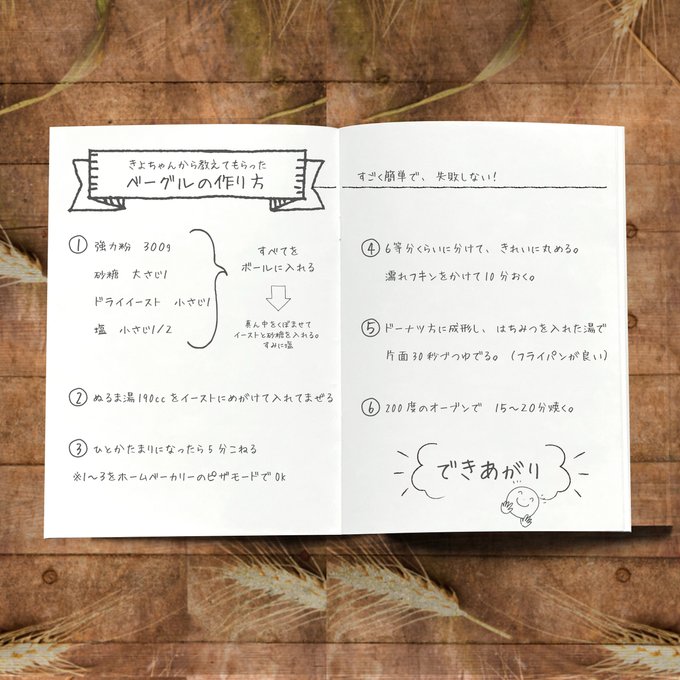 きよちゃんから教えてもらった
ベーグルの作り方
すごく簡単で、失敗しない!
① 強力粉 300g
砂糖 大さじ1
ドライイースト 小さじ1
塩 小さじ1/2
すべてを
ボールに入れる
真ん中をくぼませて
イーストと砂糖を入れる。
すみに塩
② ぬるま湯190ccをイーストにめがけて入れてまぜる
③ ひとかたまりになったら5分こねる
※1~3をホームベーカリーのピザモードでOK
④ 6等分くらいに分けて、きれいに丸める。
濡れフキンをかけて10分おく。
⑤ ドーナツ方に成形し、はちみつを入れた湯で
片面30秒づつゆでる。(フライパンが良い)
⑥ 200度のオーブンで 15~20分焼く。
できあがり